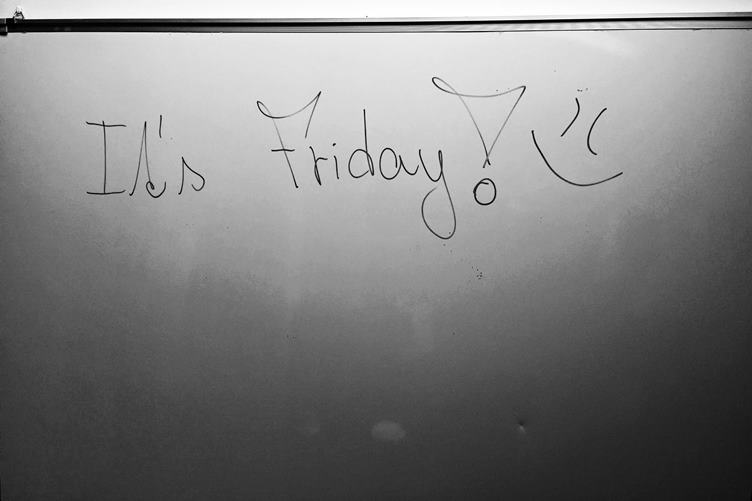 It's Friday! :)